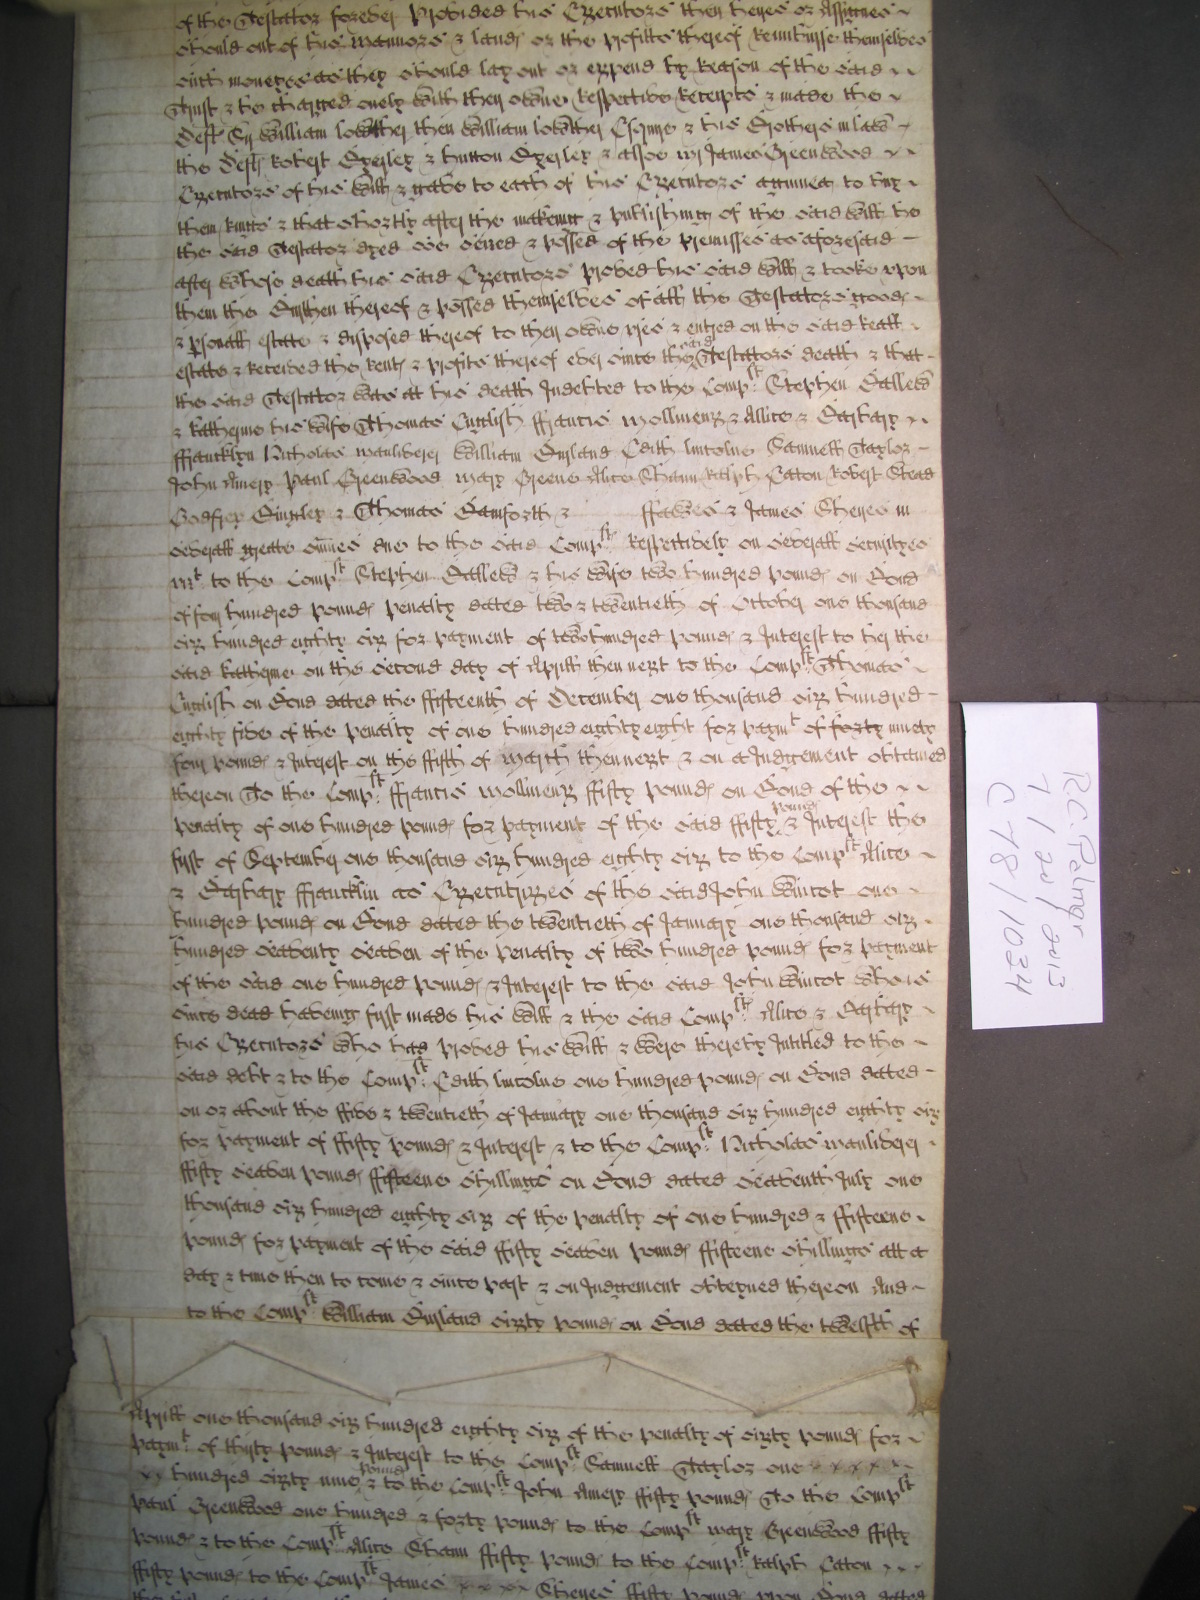 of the Testator forever Provided his Executors their heyres or Assignes
should out of his mannors & lands or the profitts thereof Reimburse themselves
such moneyes as they should lay out or expend by Reason of the said
Trust & be charged onely with their owne Respective Receipts & made the
Deft Sr William Lowther then William Lowther Esquire & his Brothers in law
the Defts Robert Byerley & hutton Byerley & alsoe mr James Greenwood
Executors of his Will & gave to each of his Executors a guinea to buy
them Rings & that shortly after the makeing & publishing of the said Will he
the said Testator dyed soe seized & possed of the premisses as aforesaid
after whose death his said Executors proved his said Will & tooke upon
them the Burthen thereof & possed themselves of all the Testators goods
& psonall estate & disposed thereof to their owne uses & entred on the said Reall
estate & Received the Rents & profits thereof ever since the said Testators death & that
the said Testator was at his death Indebted to the Complt Stephen Ballew
& Katherine his wife Thomas English ffrancis Mollineux & Allice & Barbary
ffrancklyn Nicholas Mauliverer William Busland Edith Lincolne Samuell Taylor
John Amery Paul Greenwood Mary Greene Alice Shann Ralph Caton Robert Stead
Godfrey Bingley & Thomas Bamforth & ffawes & James Sheyes in
severall greate sumes due to the said Complts Respectively on severall securityes
vizt to the Complt Stephen Ballew & his wife two hundred pounds on Bond
of four hundred pounds penalty dated two & twentieth of October one thousand
six hundred eighty six for payment of two hundred pounds & Interest to her the
said Katherine on the second day of Aprill then next to the Complt Thomas
English on Bond dated the ffifteenth of December one thousand six hundred
eighty five of the penalty of one hundred eighty eight for paymt of forty ninety
four pounds & Interest on the ffifth of March then next & on a Judgement obtained
thereon To the Complt ffrancis Mollineux ffifty pounds on Bond of the
penalty of one hundred pounds for payment of the said ffifty pounds & Interest the
first of September one thousand six hundred eighty six to the Complts Alice
& Barbary ffrancklin as Executrixes of the said John Wincot one
hundred pounds on Bond dated the twentieth of January one thousand six
hundred seaventy seaven of the penalty of two hundred pounds for payment
of the said one hundred pounds & Interest to the said John Wincot who is
since dead haveing first made his Will & the said Complts Alice & Barbary
his Executors who had proved his Will & were thereby Intitled to the
said debt & to the Complt Edith Lincolne one hundred pounds on Bond dated
on or about the ffive & twentieth of January one thousand six hundred eighty six
for payment of ffifty pounds & Interest & to the Complt Nicholas Mauliverer
ffifty seaven pounds ffifteene shillings on Bond dated seaventh July one
thousand six hundred eighty six of the penalty of one hundred & ffifteene
pounds for payment of the said ffifty seaven pounds ffifteene shillings att a
day & time then to come & since past & on Judgement obteyned thereon And
to the Complt William Busland sixty pounds on Bond dated the twelfth of
Aprill one thousand six hundred eighty six of the penalty of sixty pounds for
paymt of thirty pounds & Interest to the Complt Samuell Taylor one
hundred sixty nine pounds & to the Complt John Amery ffifty pounds To the Complt
Paul Greenwood one hundred & forty pounds to the Complt Mary Greenwood ffifty
pounds & to the Complt Alice Shann ffifty pounds to the Complt Ralph Caton
ffifty pounds to the Complt James Sheyes ffifty pounds upon Bond dated
R.C. Palmer
7 / 2013
C 78 / 1034